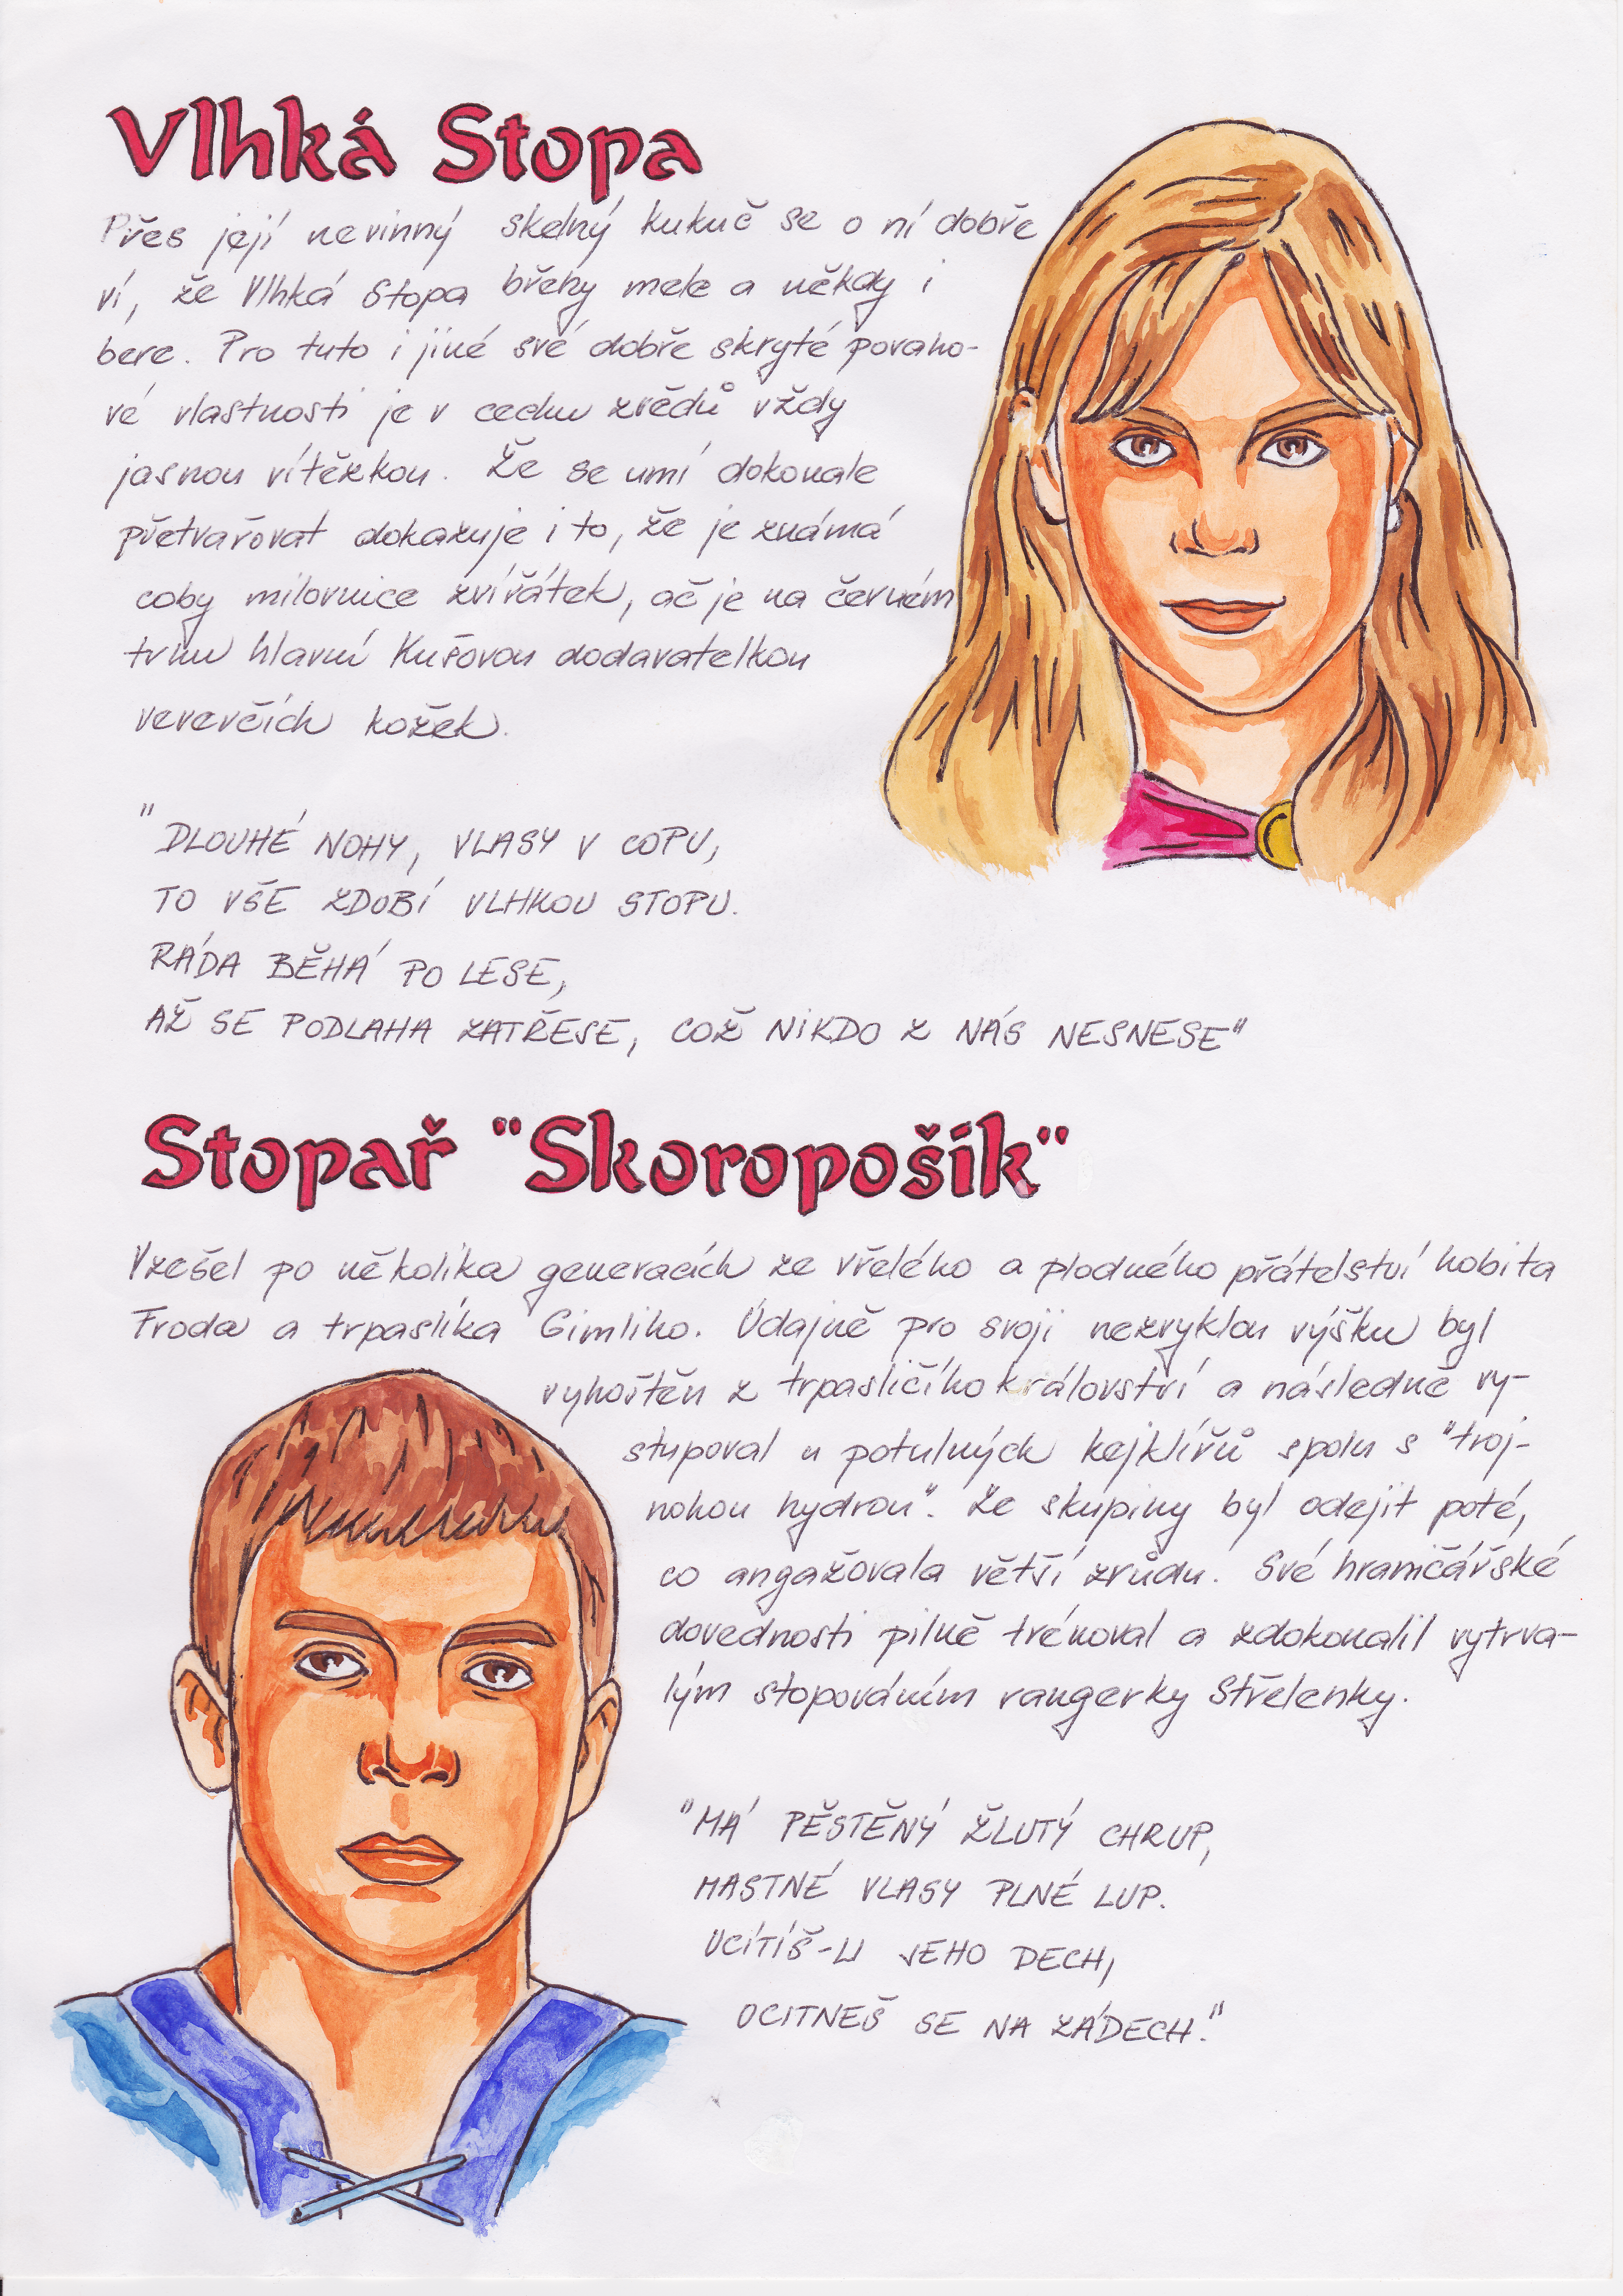 Vlhká Stopa
Přes její nevinný skelný kukuč se o ní dobře
ví, že Vlhká Stopa břehy mele a někdy i
bere. Pro tuto i jiné své dobře skryté povaho-
vé vlastnosti je v cechu zvědů vždy
jasnou vítězkou. Že se umí dokonale
přetvařovat dokazuje i to, že je známá
coby milovnice zvířátek, ač je na černém
trhu hlavní Kušovou dodavatelkou
veverčích kožek.
"DLOUHÉ NOHY, VLASY V COPU,
TO VŠE ZDOBÍ VLHKOU STOPU.
RÁDA BĚHÁ PO LESE,
AŽ SE PODLAHA ZATŘESE, COŽ NIKDO Z NÁS NESNESE"
Stopař "Skoropošík"
Vzešel po několika generacích ze vřelého a plodného přátelství hobita
Froda a trpaslíka Gimliho. Údajně pro svoji nezvyklou výšku byl
vyhoštěn z trpasličího království a následně vy-
stupoval u potulných kejklířů spolu s "troj-
nohou hydrou". Ze skupiny byl odejit poté,
co angažovala větší zrůdu. Své hraničářské
dovednosti pilně trénoval a zdokonalil vytrva-
lým stopováním rangerky Střelenky.
"MÁ PĚSTĚNÝ ŽLUTÝ CHRUP,
MASTNÉ VLASY PLNÉ LUP.
UCÍTÍŠ-LI JEHO DECH,
OCITNEŠ SE NA ZÁDECH."